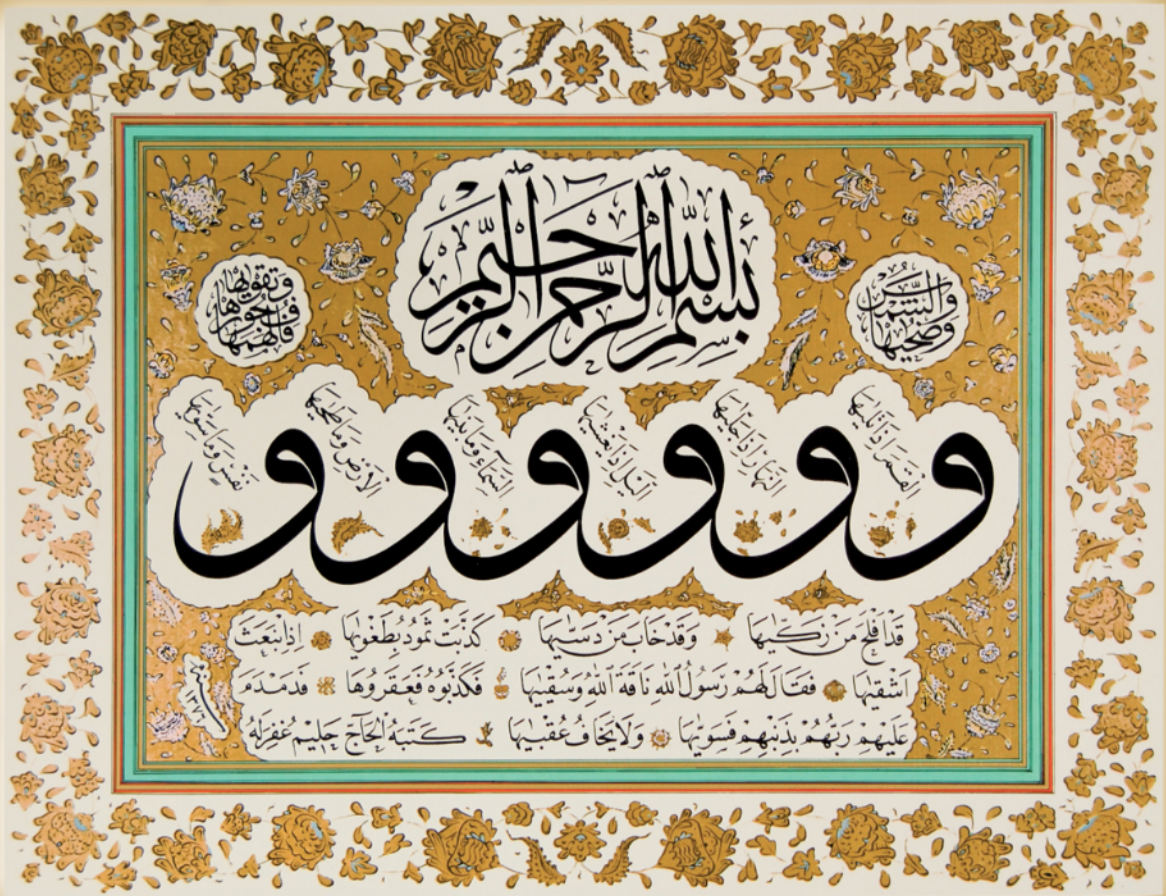 بسم الله الرحمن الرحيم
والشمس
وضحيها
والقمر اذا تليها
والنهار اذا جليها
واليل اذا يغشيها
والسماء وما بنيها
والارض وما طحيها
ونفس وما سويها
فالهمها
فجورها
وتقويها
قد افلح من زكيها وقد خاب من دسيها كذبت ثمود بطغويها اذ انبعث
اشقيها فقال لهم رسول الله ناقة الله وسقييها فكذبوه فعقروها فدمدم
عليهم ربهم بذنبهم فسويها ولا يخاف عقبيها كتبه الحاج حليم غفرله